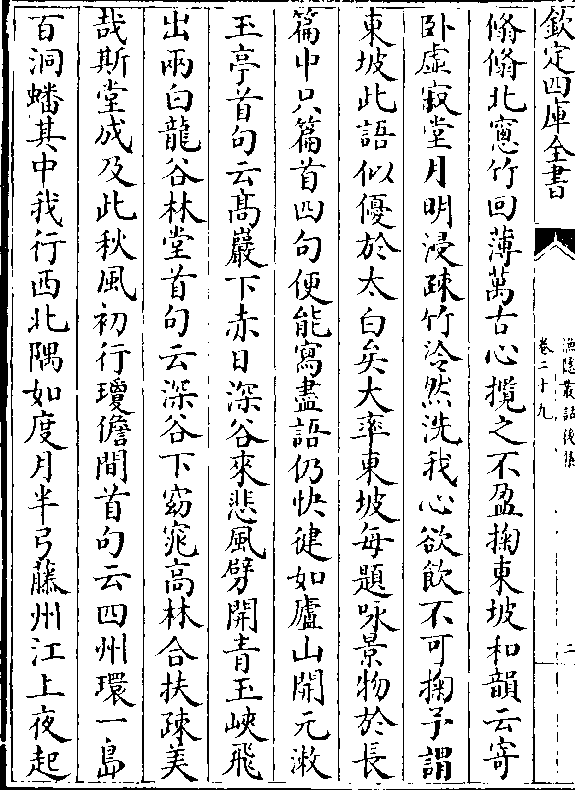 欽定四庫全書
漁隱叢話後集
卷二十九
二
翛翛北窻竹回薄萬古心攬之不盈掬東坡和韻云寄
卧虛寂堂月明浸疎竹泠然洗我心欲飲不可掬予謂
東坡此語似優於太白矣大率東坡每題咏景物於長
篇中只篇首四句便能寫盡語仍快健如廬山開元漱
玉亭首句云髙巖下赤日深谷來悲風劈開青玉峽飛
出兩白龍谷林堂首句云深谷下窈窕高林合扶疎美
哉斯堂成及此秋風初行瓊儋間首句云四州環一島
百洞蟠其中我行西北隅如度月半弓藤州江上夜起